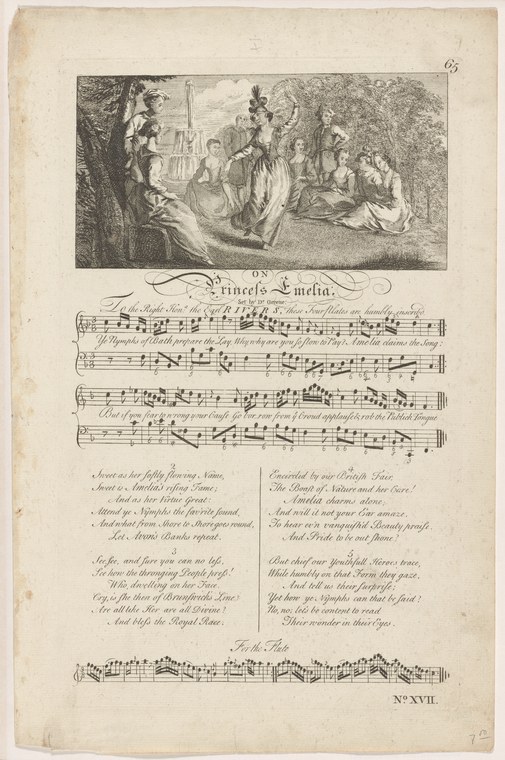 65
ON
Princess Emelia.
Set by Dr. Greene
To the Right Honl. the Earl RIVERS, these Four Plates are humbly inscrib'd
Ye Nymphs of Bath prepare the Lay, Why why are you so slow to Pay? Amelia claims the Song:
But if you fear to wrong your Cause Go borrow from ye Crowd applause & rob the Publick Tongue
2
Sweet as her softly flowing Name,
Sweet is Amelia's rising Fame;
And as her Virtue Great:
Attend ye Nymphs the fav'rite sound,
And what from Shore to Shore goes round,
Let Avon's Banks repeat.
3
See see, and sure you can no less,
See how the thronging People press!
Who, dwelling on her Face,
Cry, is she then of Brunswick's Line?
Are all like Her are all Divine?
And bless the Royal Race.
4
Encircled by our British Fair,
The Boast of Nature and her Care!
Amelia charms alone;
And will it not your Ear amaze,
To hear ev'n vanquish'd Beauty praise.
And Pride to be out shone?
5
But chief our Youthfull Heroes trace,
While humbly on that Form they gaze,
And tell us their surprise,
Yet how ye Nymphs can that be said?
No, no; let's be content to read
Their wonder in their Eyes.
For the Flute
No. XVII.